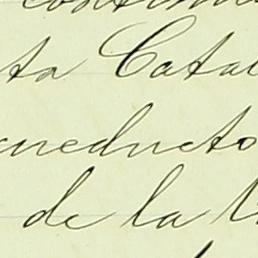 ta Cata
cueducto
de la V